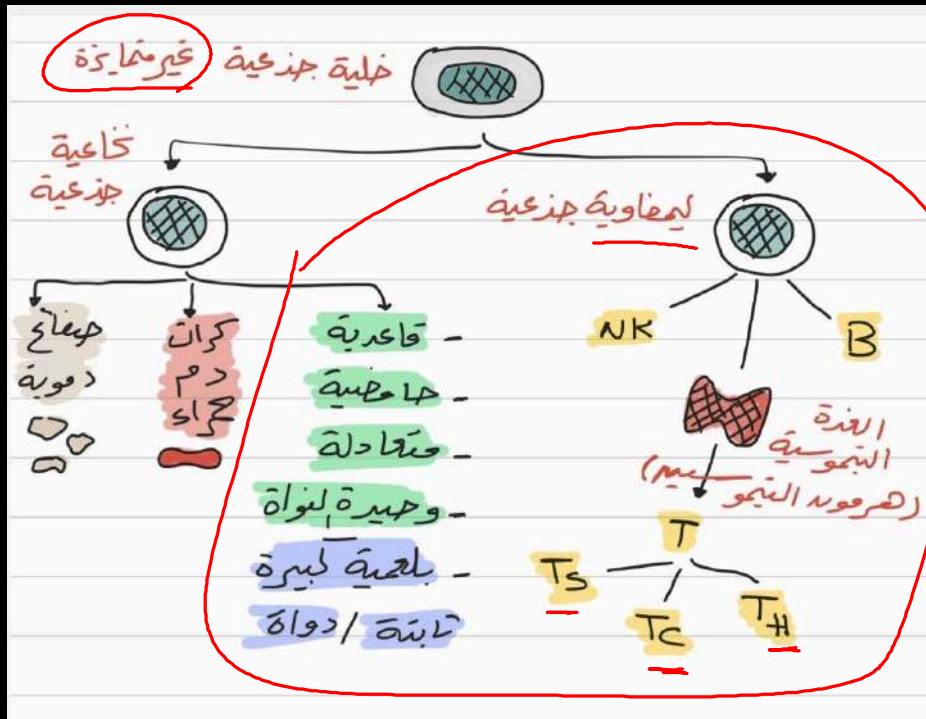 خلية جذعية غير متمايزة
نخاعية
جذعية
ليمفاوية جذعية
صفائح
دموية
كرات
دم
حمراء
- قاعدية
- حامضية
- متعادلة
- وحيدة لنواة
- بلعمية كبيرة
ثابتة / دوارة
NK
B
الغدة
التيموسية
(هرمون التيموسين)
T
TS
TC
TH